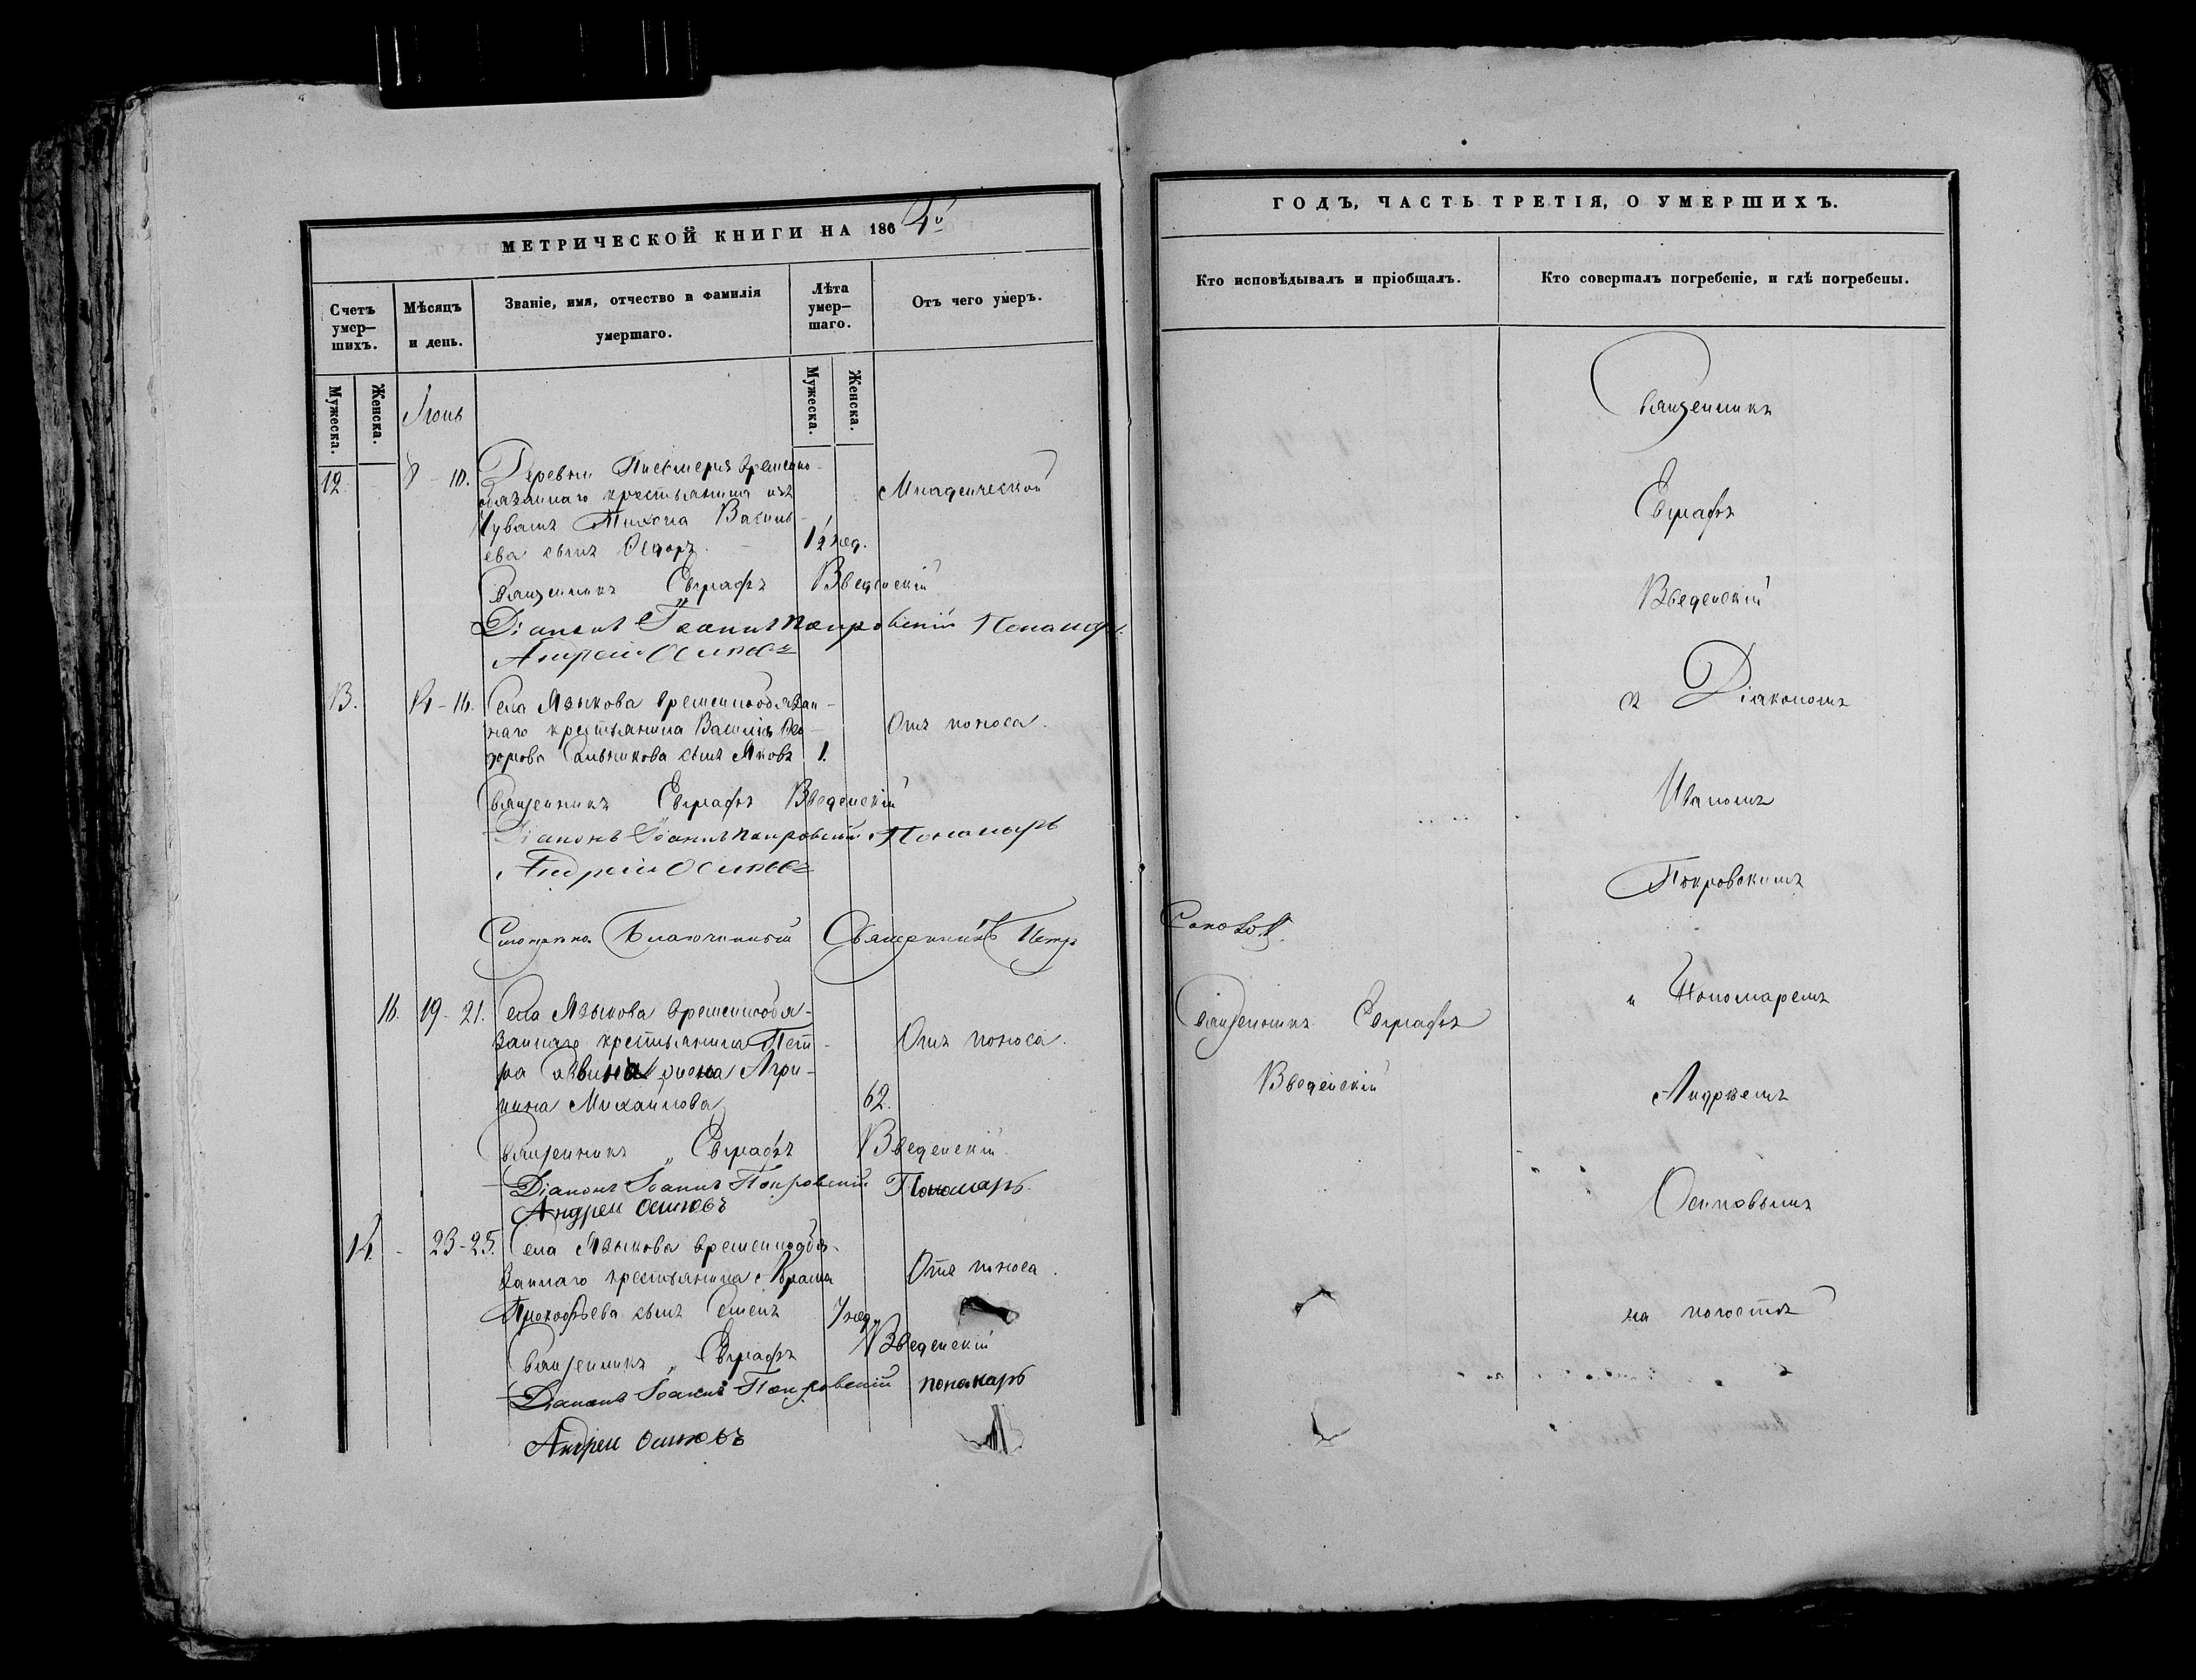 МЕТРИЧЕСКОЙ КНИГИ НА 186
Счетъ умер-шихъ.
Мѣсяцъ и день.
Званіе, имя, отчество и фамилія умершаго.
Лѣта умер-шаго.
Отъ чего умеръ.
Мужеска.
Женска.
Мужеска.
Женска.
Іюнь
12. 8 - 10. Деревни временно-
обязаннаго крестьянина изъ Младенческой
Чувашъ Тихона Василь-
ева сынъ Ѳедоръ. 1½ нед.
Священникъ Евграфъ Введенскій
Діаконъ Іоаннъ Покровскій Пономарь
Андрей Осиповъ
13. 14 - 16. Села Языкова временнообязан-
наго крестьянина Василія Ѳео- Отъ поноса.
дорова сынъ Яковъ 1.
Священникъ Евграфъ Введенскій
Діаконъ Іоаннъ Покровскій Пономарь
Андрей Осиповъ
Благочинный Священникъ Петр
16. 19 - 21. Села Языкова временнообя-
заннаго крестьянина Пет- Отъ поноса.
ра жена Агри-
пина Михайлова 62.
Священникъ Евграфъ Введенскій
Діаконъ Іоаннъ Покровскій Пономарь
Андрей Осиповъ
14. - 23-25. Села Языкова временнообя-
заннаго крестьянина Отъ поноса.
Прокофьева сынъ Семенъ 7 нед.
Священникъ Евграфъ Введенскій
Діаконъ Іоаннъ Покровскій пономарь
Андрей Осиповъ
ГОДЪ, ЧАСТЬ ТРЕТІЯ, О УМЕРШИХЪ.
Кто исповѣдывалъ и пріобщалъ.
Кто совершалъ погребеніе, и гдѣ погребены.
Священникъ Евграфъ
Введенскій
Священникъ
Евграфъ
Введенскій
съ Діакономъ
Иваномъ
Покровскимъ
и Пономаремъ
Андреемъ
Осиповымъ
на погостѣ